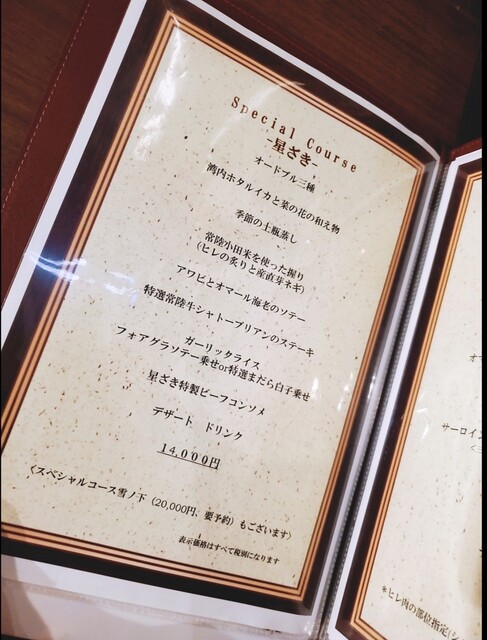 Special Course
-星ざき-
オードブル三種
湾内ホタルイカと菜の花の和え物
季節の土瓶蒸し
常陸小田米を使った握り
(ヒレの炙りと産直芽ネギ)
アワビとオマール海老のソテー
特選常陸牛シャトーブリアンのステーキ
ガーリックライス
フォアグラソテー乗せor特選まだら白子乗せ
星ざき特製ビーフコンソメ
デザート ドリンク
14,000円
〈スペシャルコース雪ノ下（20,000円、要予約）もございます〉
表示価格はすべて税別になります
オマ
サーロイン
*ヒレ肉の部位指定